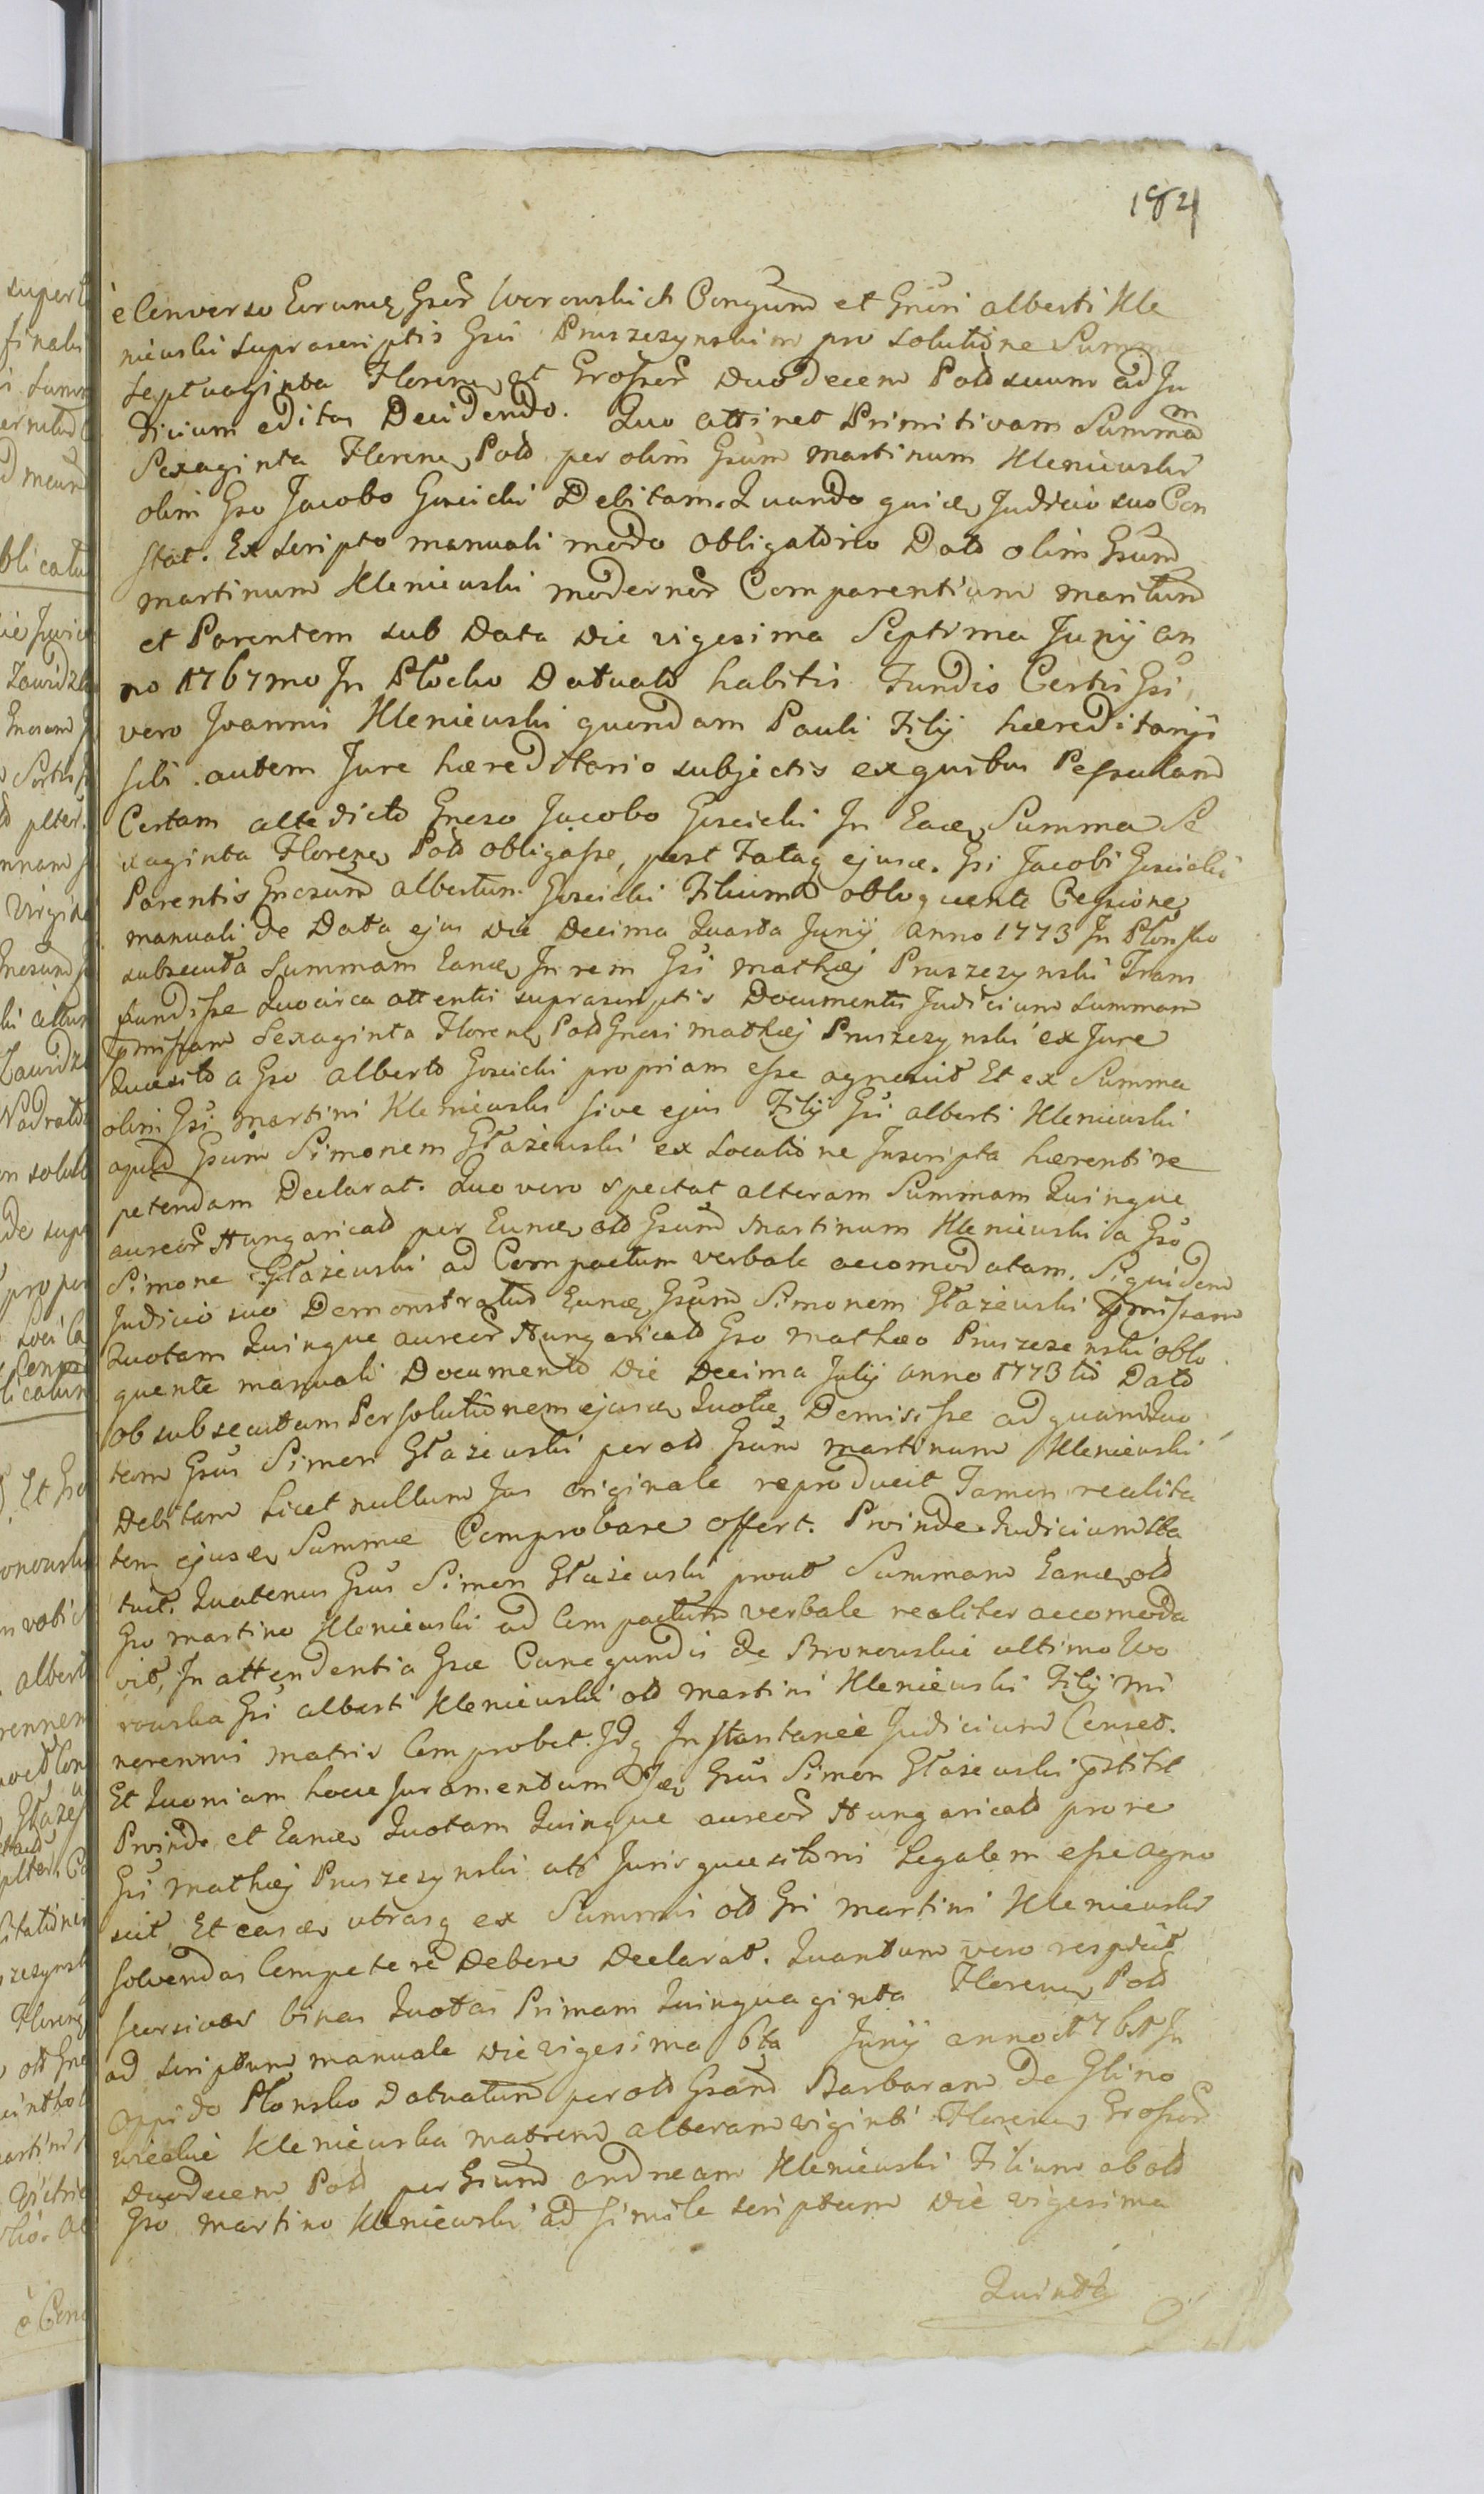 184
è Converso Eorumq Gser Worowskich Congum et Gnuri alberti Kle
niewski suprascriptis Gsu Pruszczynskim pro Solutione Summ
Septuaginta Floren et Grosser Duodecem Pold suum ad Ju
dicium editas Decidendo. Quo attinet Primitivam Summam
Sexaginta Floren Pold per olim Gsum Martinum Kleniewski
olim Gso Jacobo Gosicki Debitam. Quando quidem Judicio suo Con
stat. Ex Scripto manuali modo Obligatorio Dato olim Gsum
martinum Kleniewski modernor Comparentium maritum
et Parentem sub Data die vigesima Septima Junij an
no 1767mo In Płocko Datuato habitis Fundis Certis Gsi
vero Joannis Kleniewski quondam Pauli Filij hæreditarijs
sibi autem Jure hæreditario subjectis ex quibus Pessulam
Certam alte dicto Gneso Jacobo Gosicki In Eadem Summa Se
xaginta Floren Pold obligasse, post Fataq ejus. Gsi Jacobi Gosicki
Parentis Gnesum albertum Gosicki Filium obloquente Cessione
manuali de Data ejus die Decima Quarta Junij anno 1773 In Plonsko
subsecuta Summam Eam In rem Gsi mathæj Pruszczynski Trans
fundisse Quocirca attentis suprascriptis Documentis Judicium Summam
pmissam Sexaginta Floren Pold Gnesi mathæj Pruszczynski ex Jure
Quæsito a Gso alberto Gosicki propriam esse agnovit Et ex Summa
olim Gsi martini Kleniewski sive ejus Filij Gsi alberti Kleniewski
apud Gsum Simonem Głażewski ex Locatione Inscripta hærenti re
petendam Declarat. Quo vero spectat alteram Summam Quinque
aureor Hungaricald per Eunde old Gsum Martinum Kleniewski a Gso
Simone Głażewski ad Compactum verbale accomodatam. Siquidem
Judicio suo Demonstratum Eunde Gsum Simonem Głażewski pmissam
Quotam Quinque aureor Hungaricald Gso mathæo Pruszczenski oblo
quente manuali Documento die Decima Julij anno 1773tio Dato
ob subsecutam Persolutionem ejusde Quotæ Demisisse ad quam Quo
tam Gsus Simon Głażewski per old Gsum martinum Kleniewski
Debitam Licet nullum Jus originale reproducit Tamen realita
tem ejusde Summæ Comprobare offert. Proinde Judicium Sta
tuit. Quatenus Gsus Simon Głażewski prout Summam Eande old
Gso martino Kleniewski ad Compactum verbale realiter accomoda
vit, In attendentia Gsæ Cunegundis de Bronowskie ultimo Wo
rowska Gsi alberti Kleniewski old Martini Kleniewski Filij mi
norennis matris Comprobet. Idq Instantaneè Judicium Censet.
Et Quoniam hocce Juramentum Idem Gsus Simon Głażewski pstitit
Proinde et Eande Quotam Quinque aureor Hungaricald pro re
Gsi mathæj Pruszczynski uti Juris quæsitoris Legalem esse agno
scit, Et easde utrasq ex Summis old Gsi martini Kleniewski
solvendas Competere Debere Declarat. Quantum vero respicit
seorsivas binas Quotas Primam Quinquaginta Floren Pold
ad Scriptum manuale die vigesima 6ta Junij anno 1761 In
Oppido Płonsko Datuatum per old Gsam Barbaram de Glino
wieckie Kleniewska matrem alteram viginti Floren Grosser
Duodecem Pold per Gsum andream Kleniewski Filium ab old
Gso Martino Kleniewski ad Simile Scriptum die vigesima
Quinta